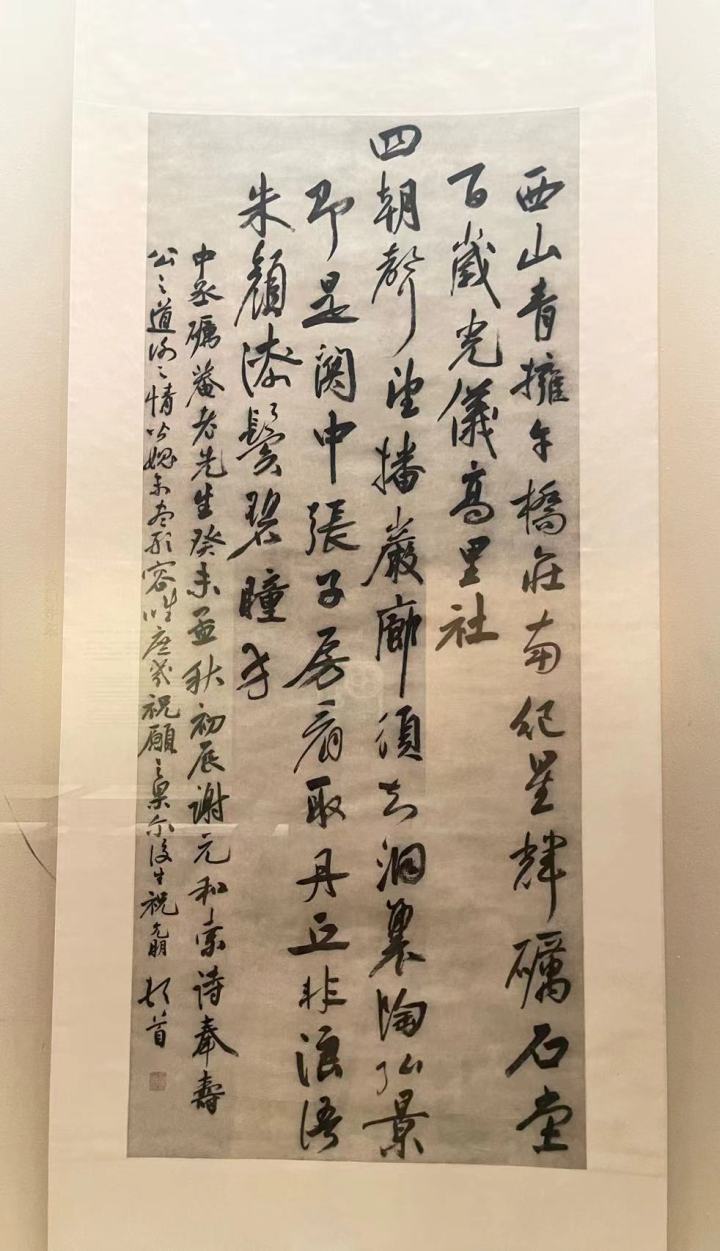 西山青擁午橋莊南紀星輝礪石堂
百歲光儀高里社
四朝聲望播巖廊須知洞裏陶弘景
即是關中張子房看取丹丘非浪語
朱顏漆鬢碧瞳方
中丞礪菴老先生癸未孟秋初辰謝元和索詩奉壽
公之道德之情以媿未盡形容惟庶幾祝願之果尔後生祝允明頓首